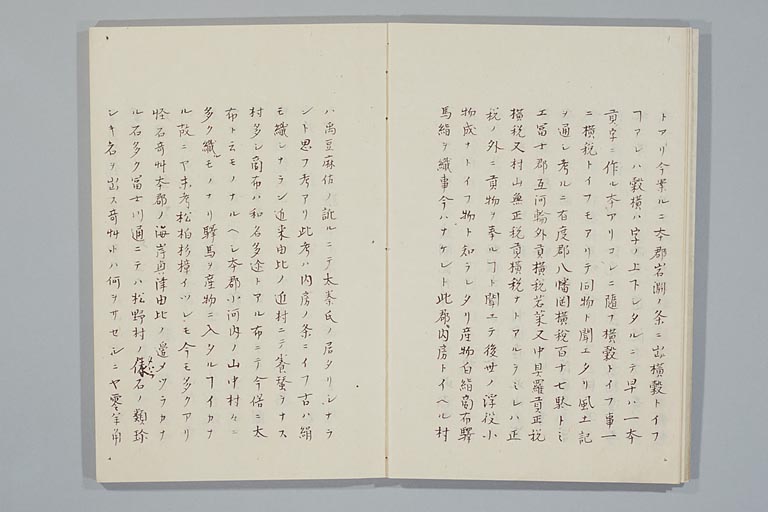 トアリ今案ルニ本郡岩淵ノ条ニ出横穀トイフ
アレハ穀横ハ字ノ上下シタルニテ早ハ一本
貢字ニ作ル本アリコレニ隨ヲ横穀トイフ事一
ニ横税トイフモアリテ同物ト聞エタリ風土記
ヲ通シ考ルニ有度郡八幡団横税百十七黙トミ
エ冨士郡互河輪外貢横税若菜又中具羅貢正税
横税又村山無正税貢横税ナトアルヲミレハ正
税ノ外ニ貢物ヲ奉ルヿト聞エテ後世ノ浮役小
物成ナトイフ物ト知ラレタリ産物白絹商布驛
馬絹ヲ織事今ハナケレト此郡内房トイヘル村
ハ禹豆麻佐ノ訛ルニテ太秦氏ノ居タリシナラ
ント思フ考アリ此考ハ内房ノ条ニイフ古ハ絹
モ織シナラン近来由比ノ近村ニテ養蚕ヲナス
村多シ商布ハ和名多途トアル布ニテ今俗ニ太
布ト云モノナルヘシ本郡小河内ノ山中村々ニ
多ク織モノナリ驛馬ヲ産物ニ入タルヿイカナ
ル故ニヤ未考松柏杉樟イツレモ今モ多クアリ
怪石奇艸本郡ノ海岸興津由比ノ邉メツラカナ
ル石多ク冨士川通ニテハ松野村ノ石ノ類珍
シキ名ヲ出ス奇艸トハ何ヲサセシニヤ零羊角